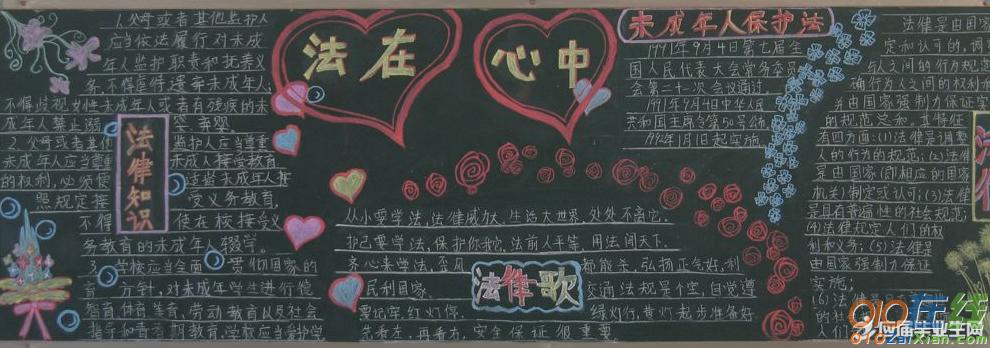 1.父母或者其他监护人
应当依法履行对未成
年人监护职责和抚养义
务,不得虐待遗弃未成年人,
不得歧视女性未成年人或者有残疾的未
成年人禁止溺婴、弃婴.
2.父母或者其他监护人应当尊重
未成年人应当尊重未成年人接受教育
的权利,必须使适龄未成年人接
照规定接受义务教育,
不得使在校接受义
务教育的未成年人辍学.
3.学校应当全面贯彻国家的
育方针,对未成年学生进行德
育、智育、体育、美育、劳动教育以及社会
指导和青春期教育,学校应当爱护学
法律知识
法在心中
从小要学法,法律威力大,生活大世界,处处不离它.
护己要学法,保护你我它,法前人平等,用法闯天下.
齐心来学法,都能杀,弘扬正气好,利
民利国家.交通法规是个宝,自觉遵
要记牢.红灯停.绿灯行,黄灯起步准备好.
先看左,再看右,安全保证很重要.
法律歌
未成年人保护法
1991年9月4日第七届全
国人民代表大会常务委员
会第二十一次会议通过
1991年9月4日中华人民
共和国主席令第50号公布
1992年1月1日起实施
法律是由国家
定和认可的,调
人之间的行为规范
行为人之间的权利
并由国家强制力保证
的规范总和.其特征
有四方面:(1)法律是调整
人的行为的规范;(2)法律
是由国家(即相应的国家
机关)制定或认可;(3)法律
是具有普遍性的社会规范;
(4)法律规定人们的权
利和义务;(5)法律是
由国家强制力保证
实施;
(6)法律
的社
人们
010在线
应届毕业生网
010zaiXian.com